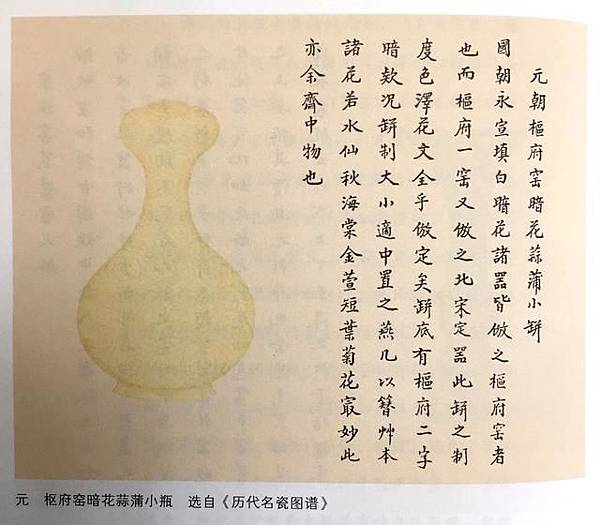 元朝樞府窑暗花蒜蒲小缾
國朝永宣填白暗花諸噐皆倣之樞府窑者
也而樞府一窑又倣之北宋定噐此缾之制
度色澤花文全乎倣定矣缾底有樞府二字
暗欵况缾制大小適中置之燕几以簪艸本
諸花若水仙秋海棠金萱短葉菊花㝡妙此
亦余齋中物也
元 枢府窑暗花蒜蒲小瓶 选自《历代名瓷图谱》